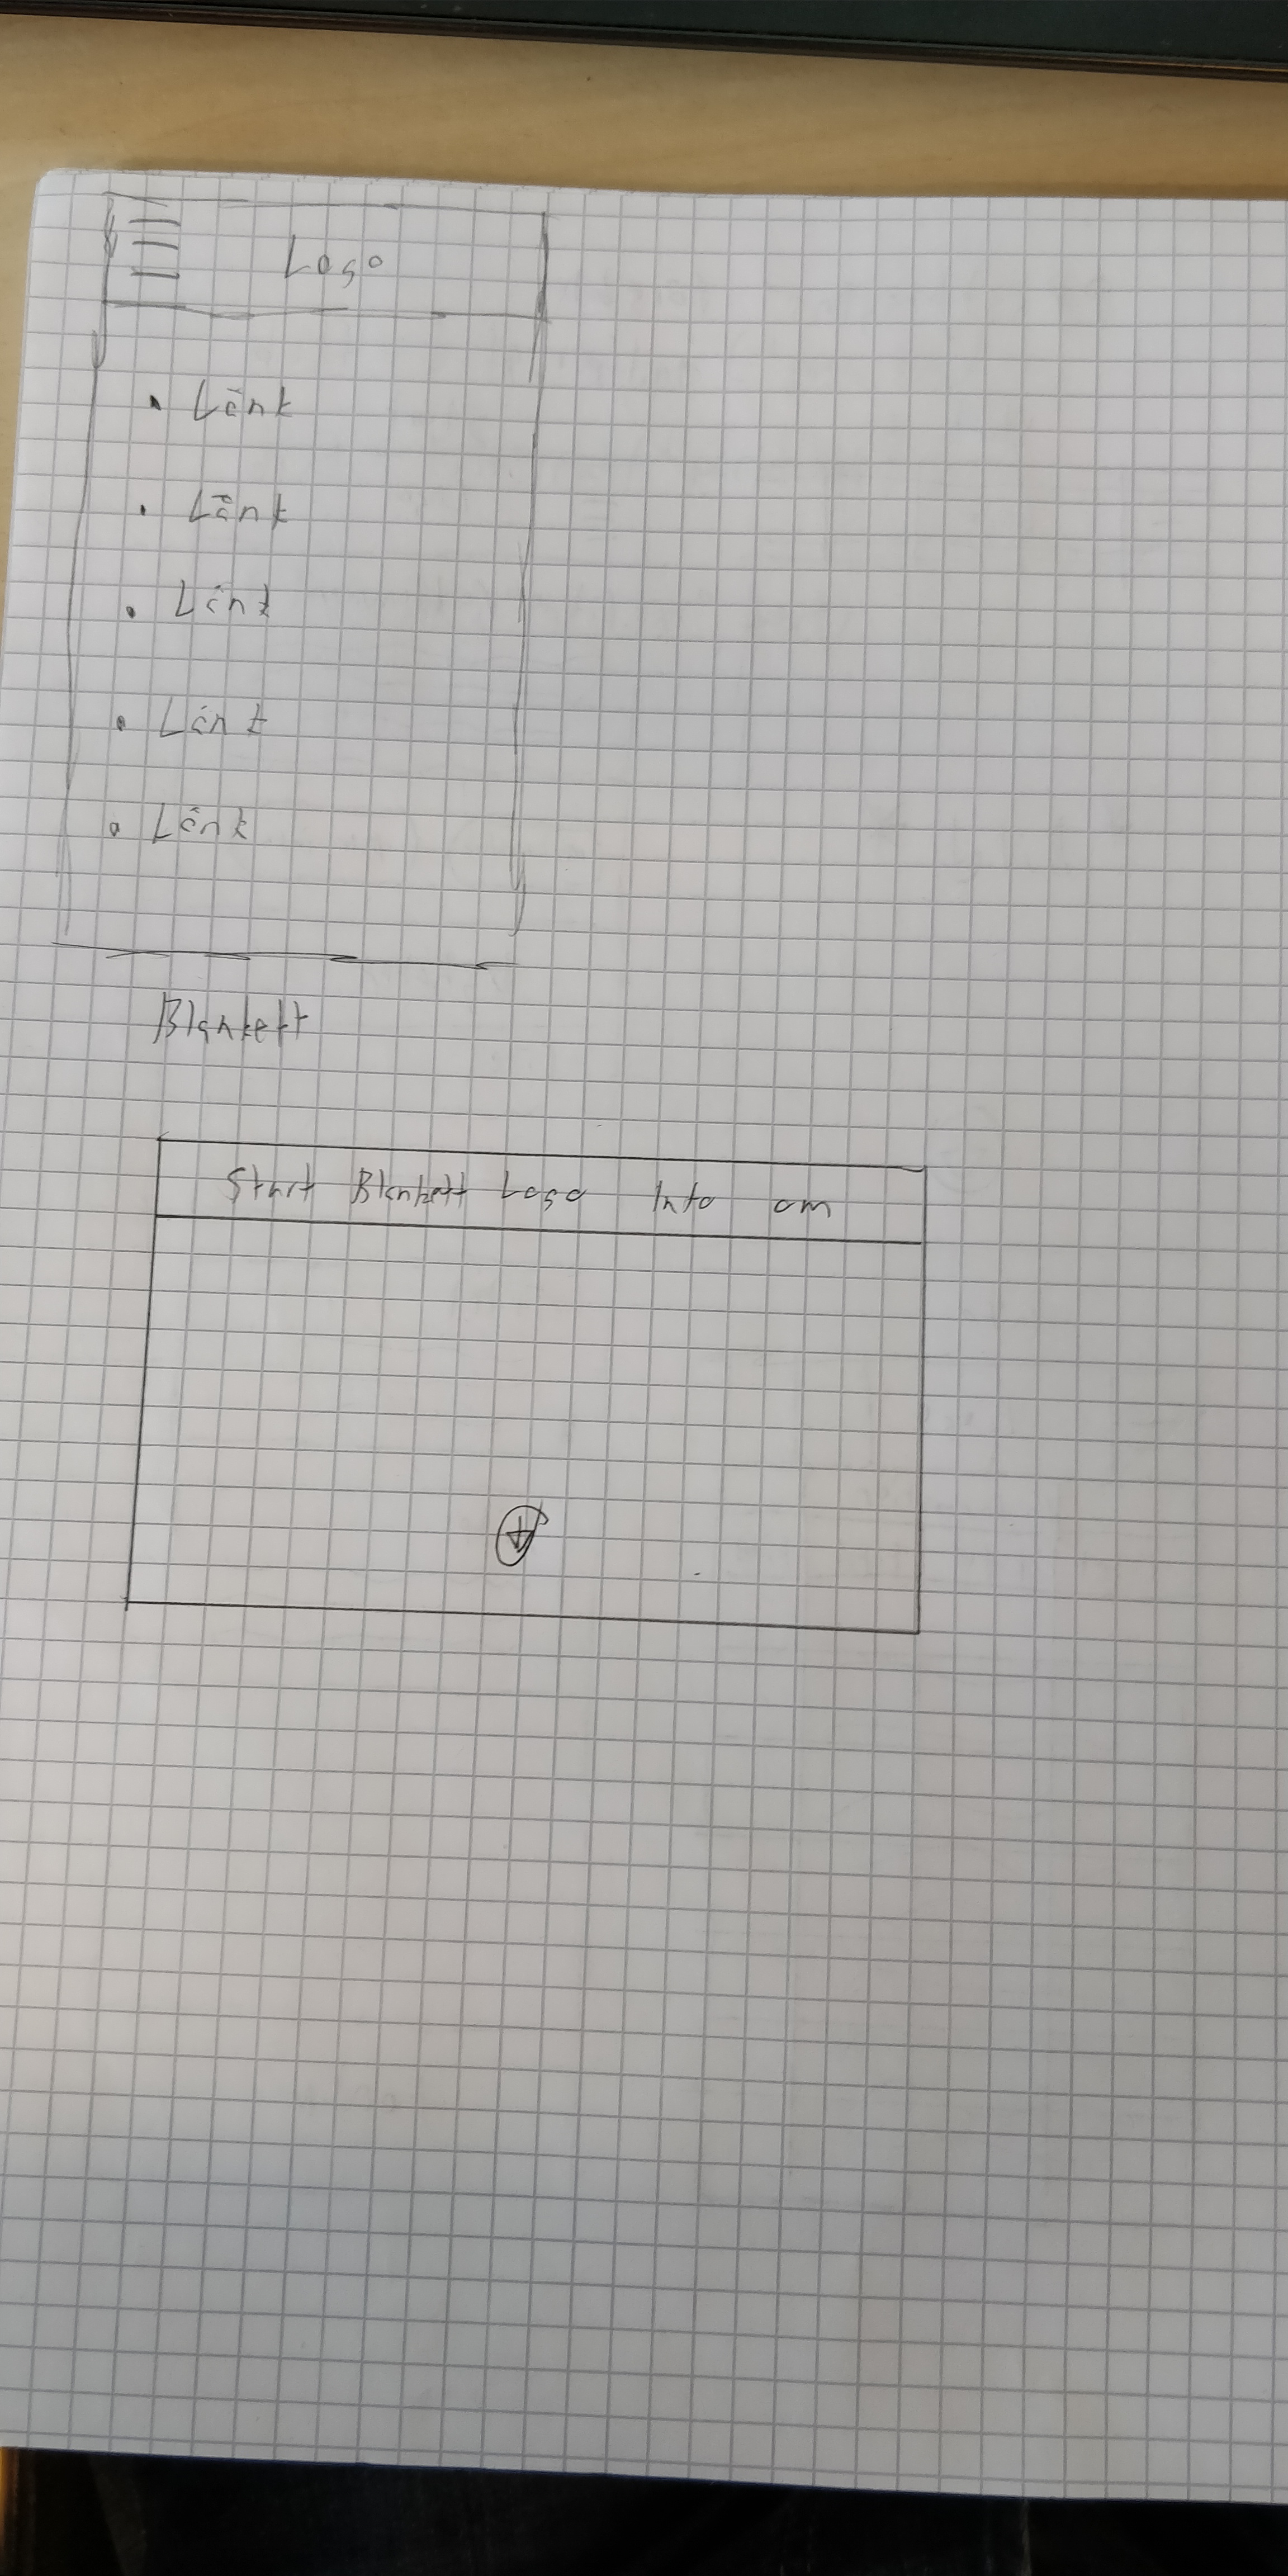 Logo
• Länk
• Länk
• Länk
• Länk
• Länk
Blankett
Start Blankett Logo Info om